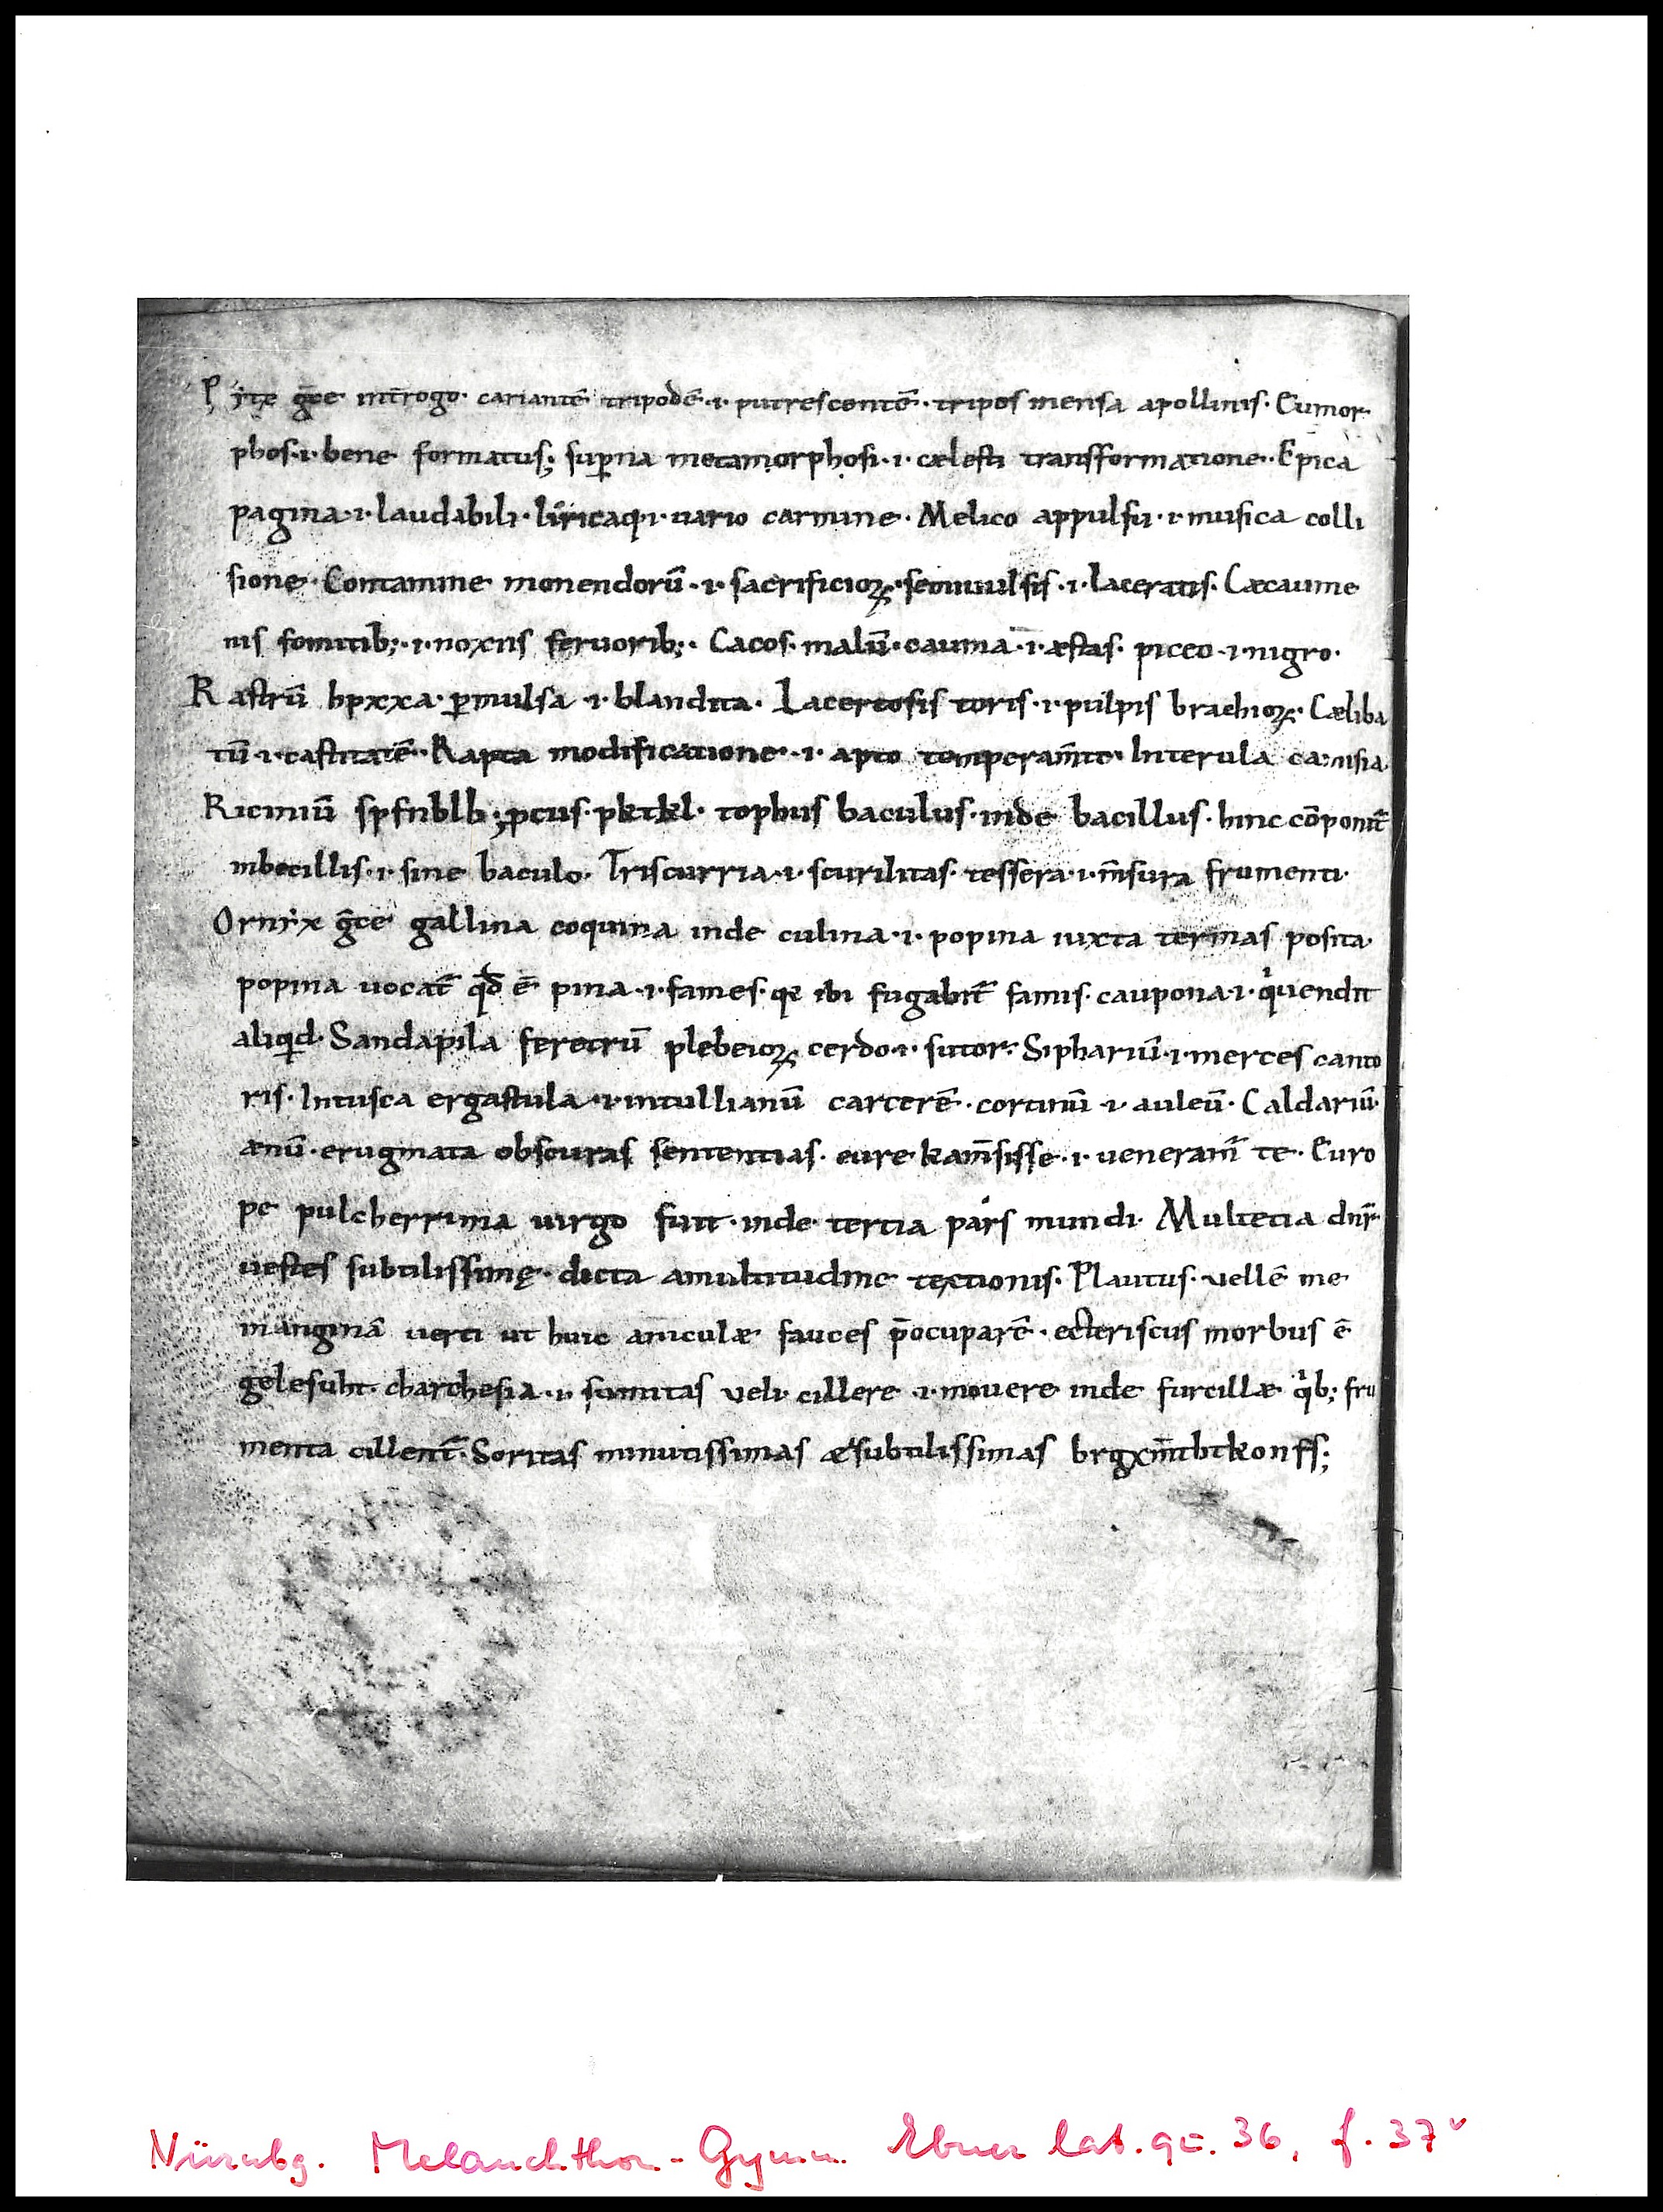 Pẏtę gr̄ce int̄rogo· cariantē tripodē·ı· putrescentē·tripos mensa apollinis· Eumor
phos·ı·bene formatus; suꝑna metamorphosi·ı·cælesti transsformatione··Epica
pagina·ı·laudabili·liricaq;ı·uario carmine· Melico appulsu·ı·musica colli
sione·Contamine monendorū·ı·sacrificioꝝ·semiuulsis·ı·laceratis·Cæcaume
nis fomitib;·ı·noxiis feruorib;· Cacos·malū·cauma·ı·æstas· piceo·ı·nigro·
Rastrū hpxxa·ꝑmulsa·ı·blandita· Lacertosis toris·ı·pulpis brachioꝝ· Cæliba
tū·ı·castitatē··Rapta modificatione··ı· apto temperam̄to· Interula camisia·
Ricıniū spfnblb;ꝓcus·pktkl· tophus baculus·inde bacillus·hinc cōponit̄
inbecillis·ı·sine baculo· Triscurria·ı·scurilitas· tessera·ı·m̄sura frumenti·
Ornix gr̄ce gallina coquina inde culina·ı·popina iuxta termas posita·
popina uocat̄ qd̄ ē pina·ı·fames·qꝛ ibi fugabit̄ famis·caupona·ı·qͥuendit
aliqͥd·Sandapila feretrū plebeioꝝ cerdo·ı·sutor·Sipharıū·ı·merces canto
ris·Intusca ergastula·ı·intullianū carcerē·cortinū·ı·auleū·Caldariū·
ænū·erugmata obscuras sententias·eure kam̄sisse·ı·ueneram̄ te·Euro
pe pulcherrima uirgo fuit·inde tertia pars mundi· Multetia dn̄r·
uestes subtilissimę·dicta amultitudine textionis·Plautus·vellē me
inanginā uerti ut huic aniculæ fauces p̄ocuparē·ecteriscus morbus ē
gelesuht·charchesia·ı·sumitas veli·cillere·ı·mouere inde furcillæ qͥb; fru
menta cillent̄·Soritas minutissimas &subtilissimas brgxm̄tbtkonfs;
Nürnbg. Melanchthon-Gymn. Ebner lat. qu. 36, f. 37ᵛ